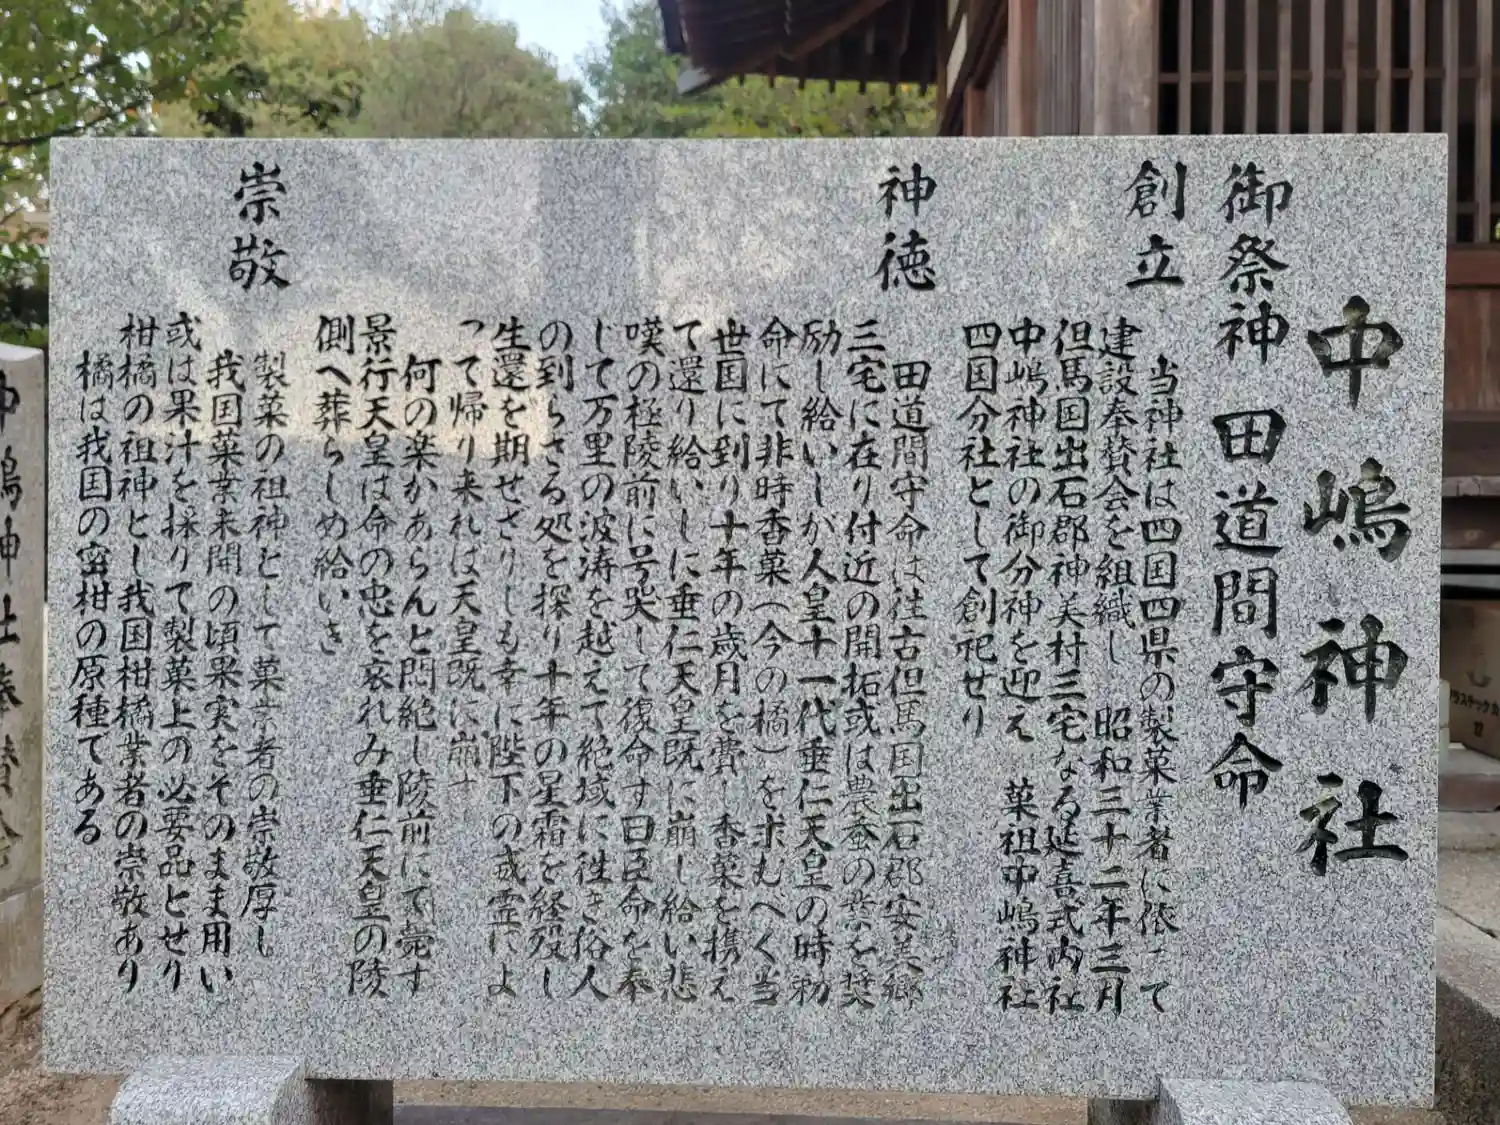 中嶋神社
御祭神 田道間守命
創立
当神社は四国四県の製菓業者に依って
建設奉賛会を組織し 昭和三十二年三月
但馬国出石郡神美村三宅なる延喜式内社
中嶋神社の御分神を迎え 菓祖中嶋神社
四国分社として創祀せり
神徳
田道間守命は往古但馬国出石郡安美郷
三宅に在り付近の開拓或は農蚕の業を奨
励し給いしが人皇十一代垂仁天皇の時勅
命にて非時香菓(今の橘)を求むべく当
世国に到り十年の歳月を費し香菓を携え
て還り給いしに垂仁天皇既に崩じ給い悲
嘆の極陵前に号哭して復命す曰臣命を奉
じて万里の波涛を越えて絶域に往き俗人
の到らざる処を探り十年の星霜を経殁し
生還を期せざりしも幸に陛下の威霊によ
って帰り来れば天皇既に崩ず
何の楽かあらんと悶絶し陵前にて薨す
景行天皇は命の忠を哀れみ垂仁天皇の陵
側へ葬らしめ給いき
崇敬
製菓の祖神として菓業者の崇敬厚し
我国菓業未開の頃果実をそのまま用い
或は果汁を採りて製菓上の必要品とせり
柑橘の祖神とし我国柑橘業者の崇敬あり
橘は我国の蜜柑の原種である
中嶋神社奉賛会